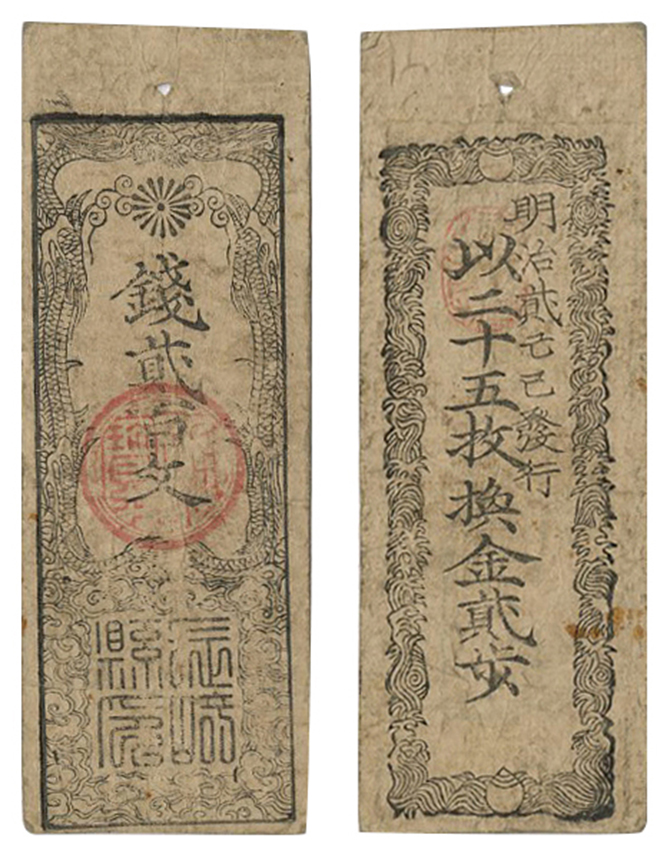 錢貳百文
長崎
縣
明治貳己巳發行
以二十五枚換金貳歩